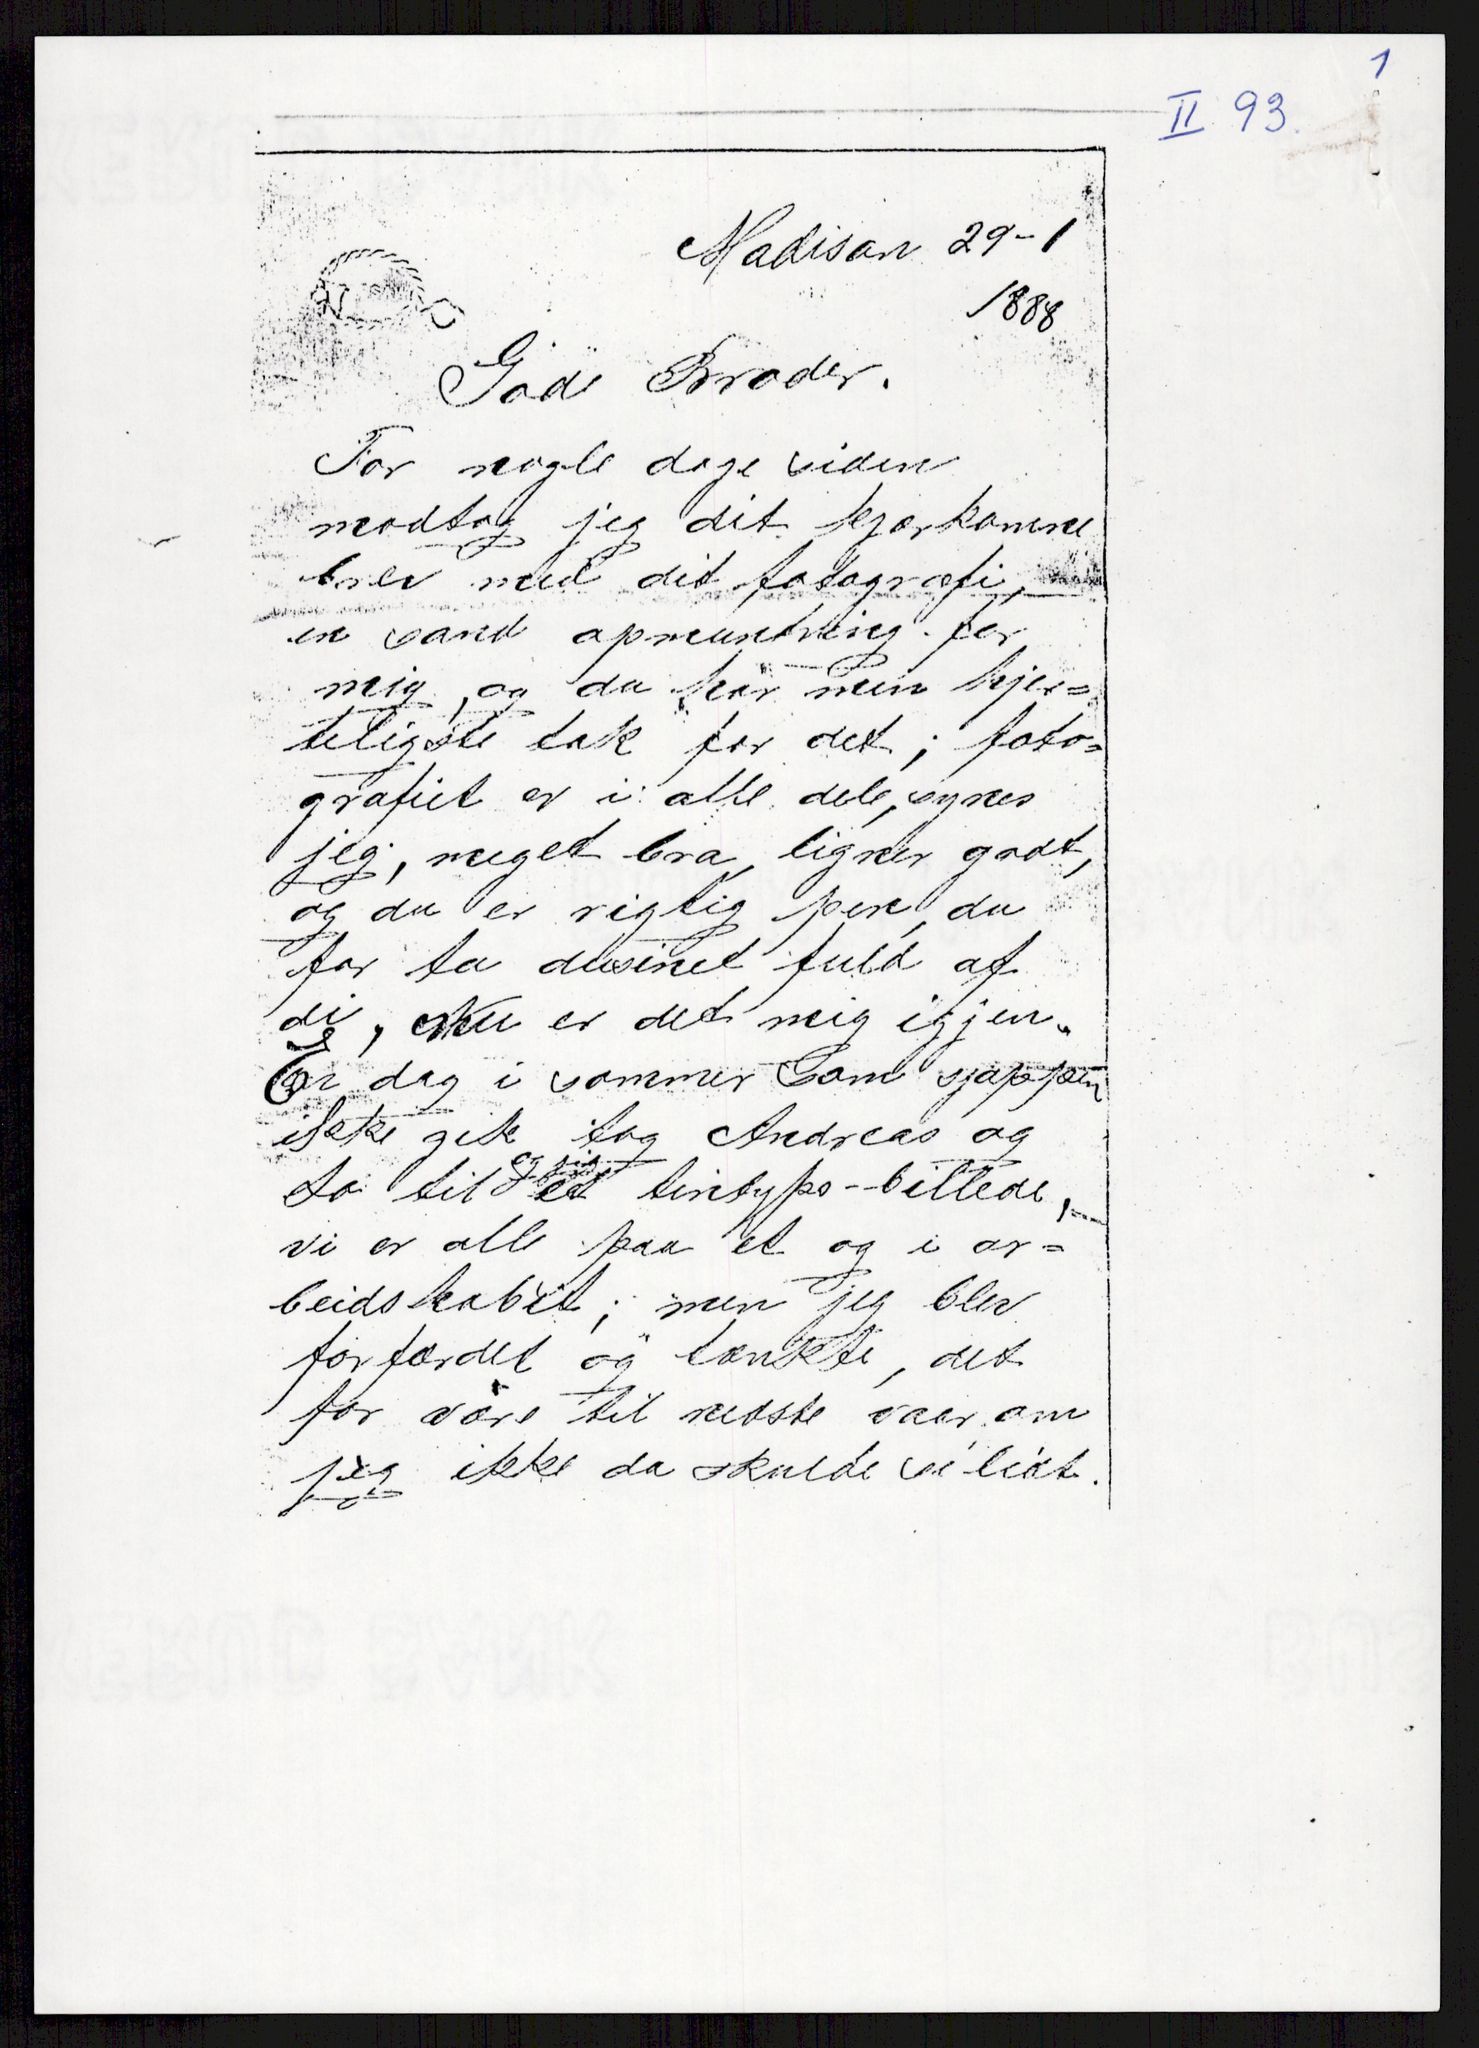 1
II 93.
Madison 29-1
1888
Gode Broder.
For nogle dage siden
modtog jeg dit kjærkomne
brev med dit fotografi,
en sand opmuntring for
mig, og du har min hjer=
teligste tak for det; foto=
grafiet er i alle dele, synes
jeg, meget bra, ligner godt,
og du er rigtig pen, du
får ta dusinet fuld af
di, nu er det mig igjen.
En dag i sommer som sjappen
ikke gik tog Andreas og
to til og jeg et tintype-billede,
vi er alle paa et og i ar=
beidshabit; men jeg blev
forfærdet og tænkte, det
får være til næste vaar om
jeg ikke da skulde se lidt